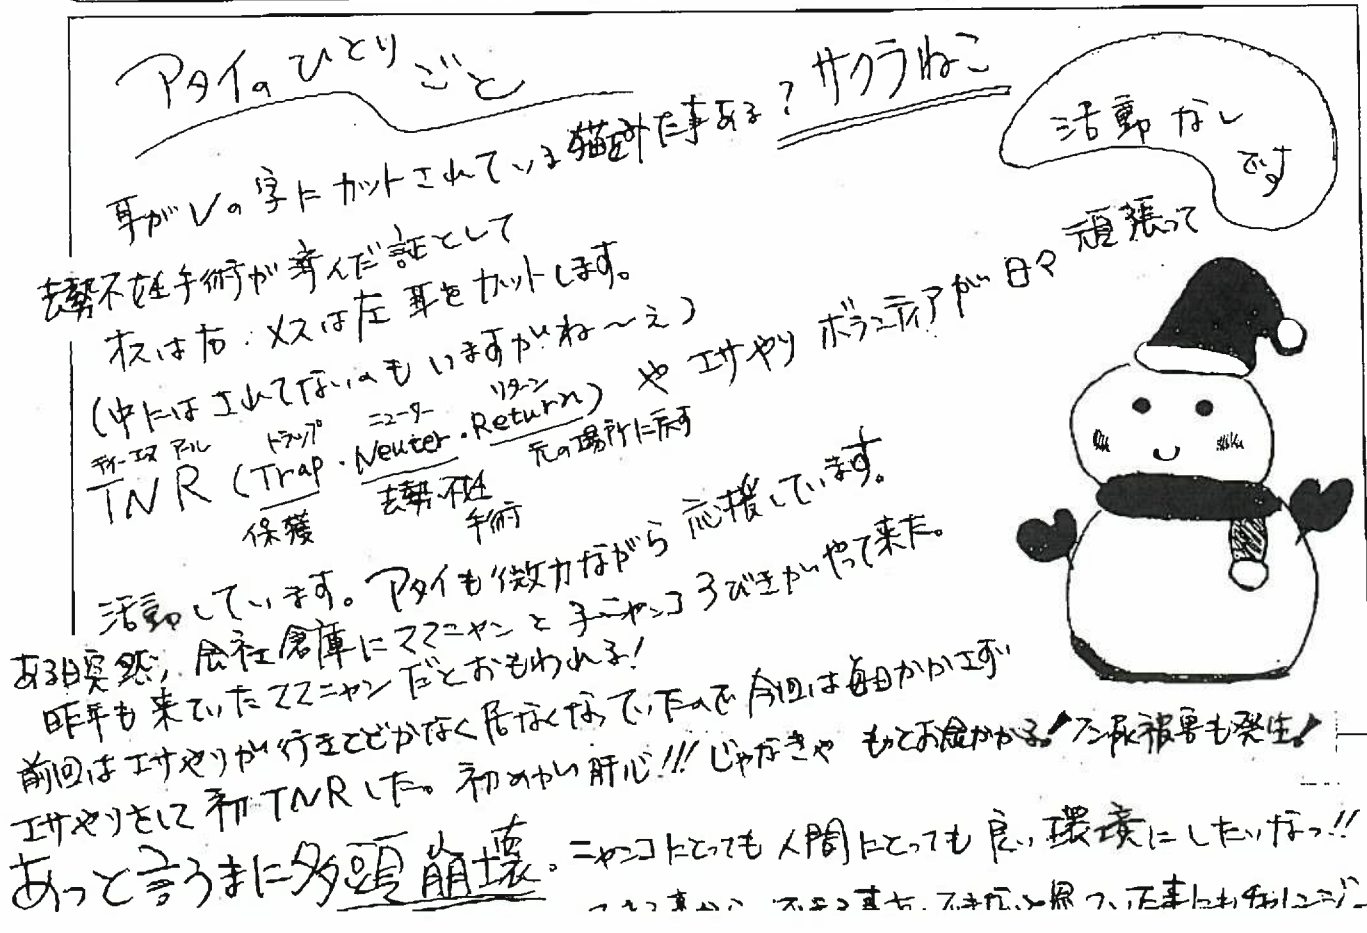 アタイのひとりごと
サクラねこ
活動なし
です
耳がVの字にカットされている猫をみた事ある?
去勢不妊手術が済んだ証として
オスは右・メスは左耳をカットします。
(中にはされてないのもいますがね〜え)
ティーエヌアール トラップ ニューター リターン
TNR (Trap・Neuter・Return) や エサやりボランティアが日々頑張って
保護 去勢・不妊手術 元の場所に戻す
活動しています。アタイも微力ながら応援しています。
ある日突然、会社倉庫にママニャンと子ニャンコ3びきがやって来た。
昨年も来ていたママニャンだとおもわれる!
前回はエサやりが行きとどかなく居なくなっていたので今回は毎日かかさず
エサやりをして初TNRした。初めがい肝心!!!じゃなきゃもっとお金かかる!フン尿被害も発生!
あっと言うまに多頭崩壊。ニャンコにとっても人間にとっても良い環境にしたいなっ!!